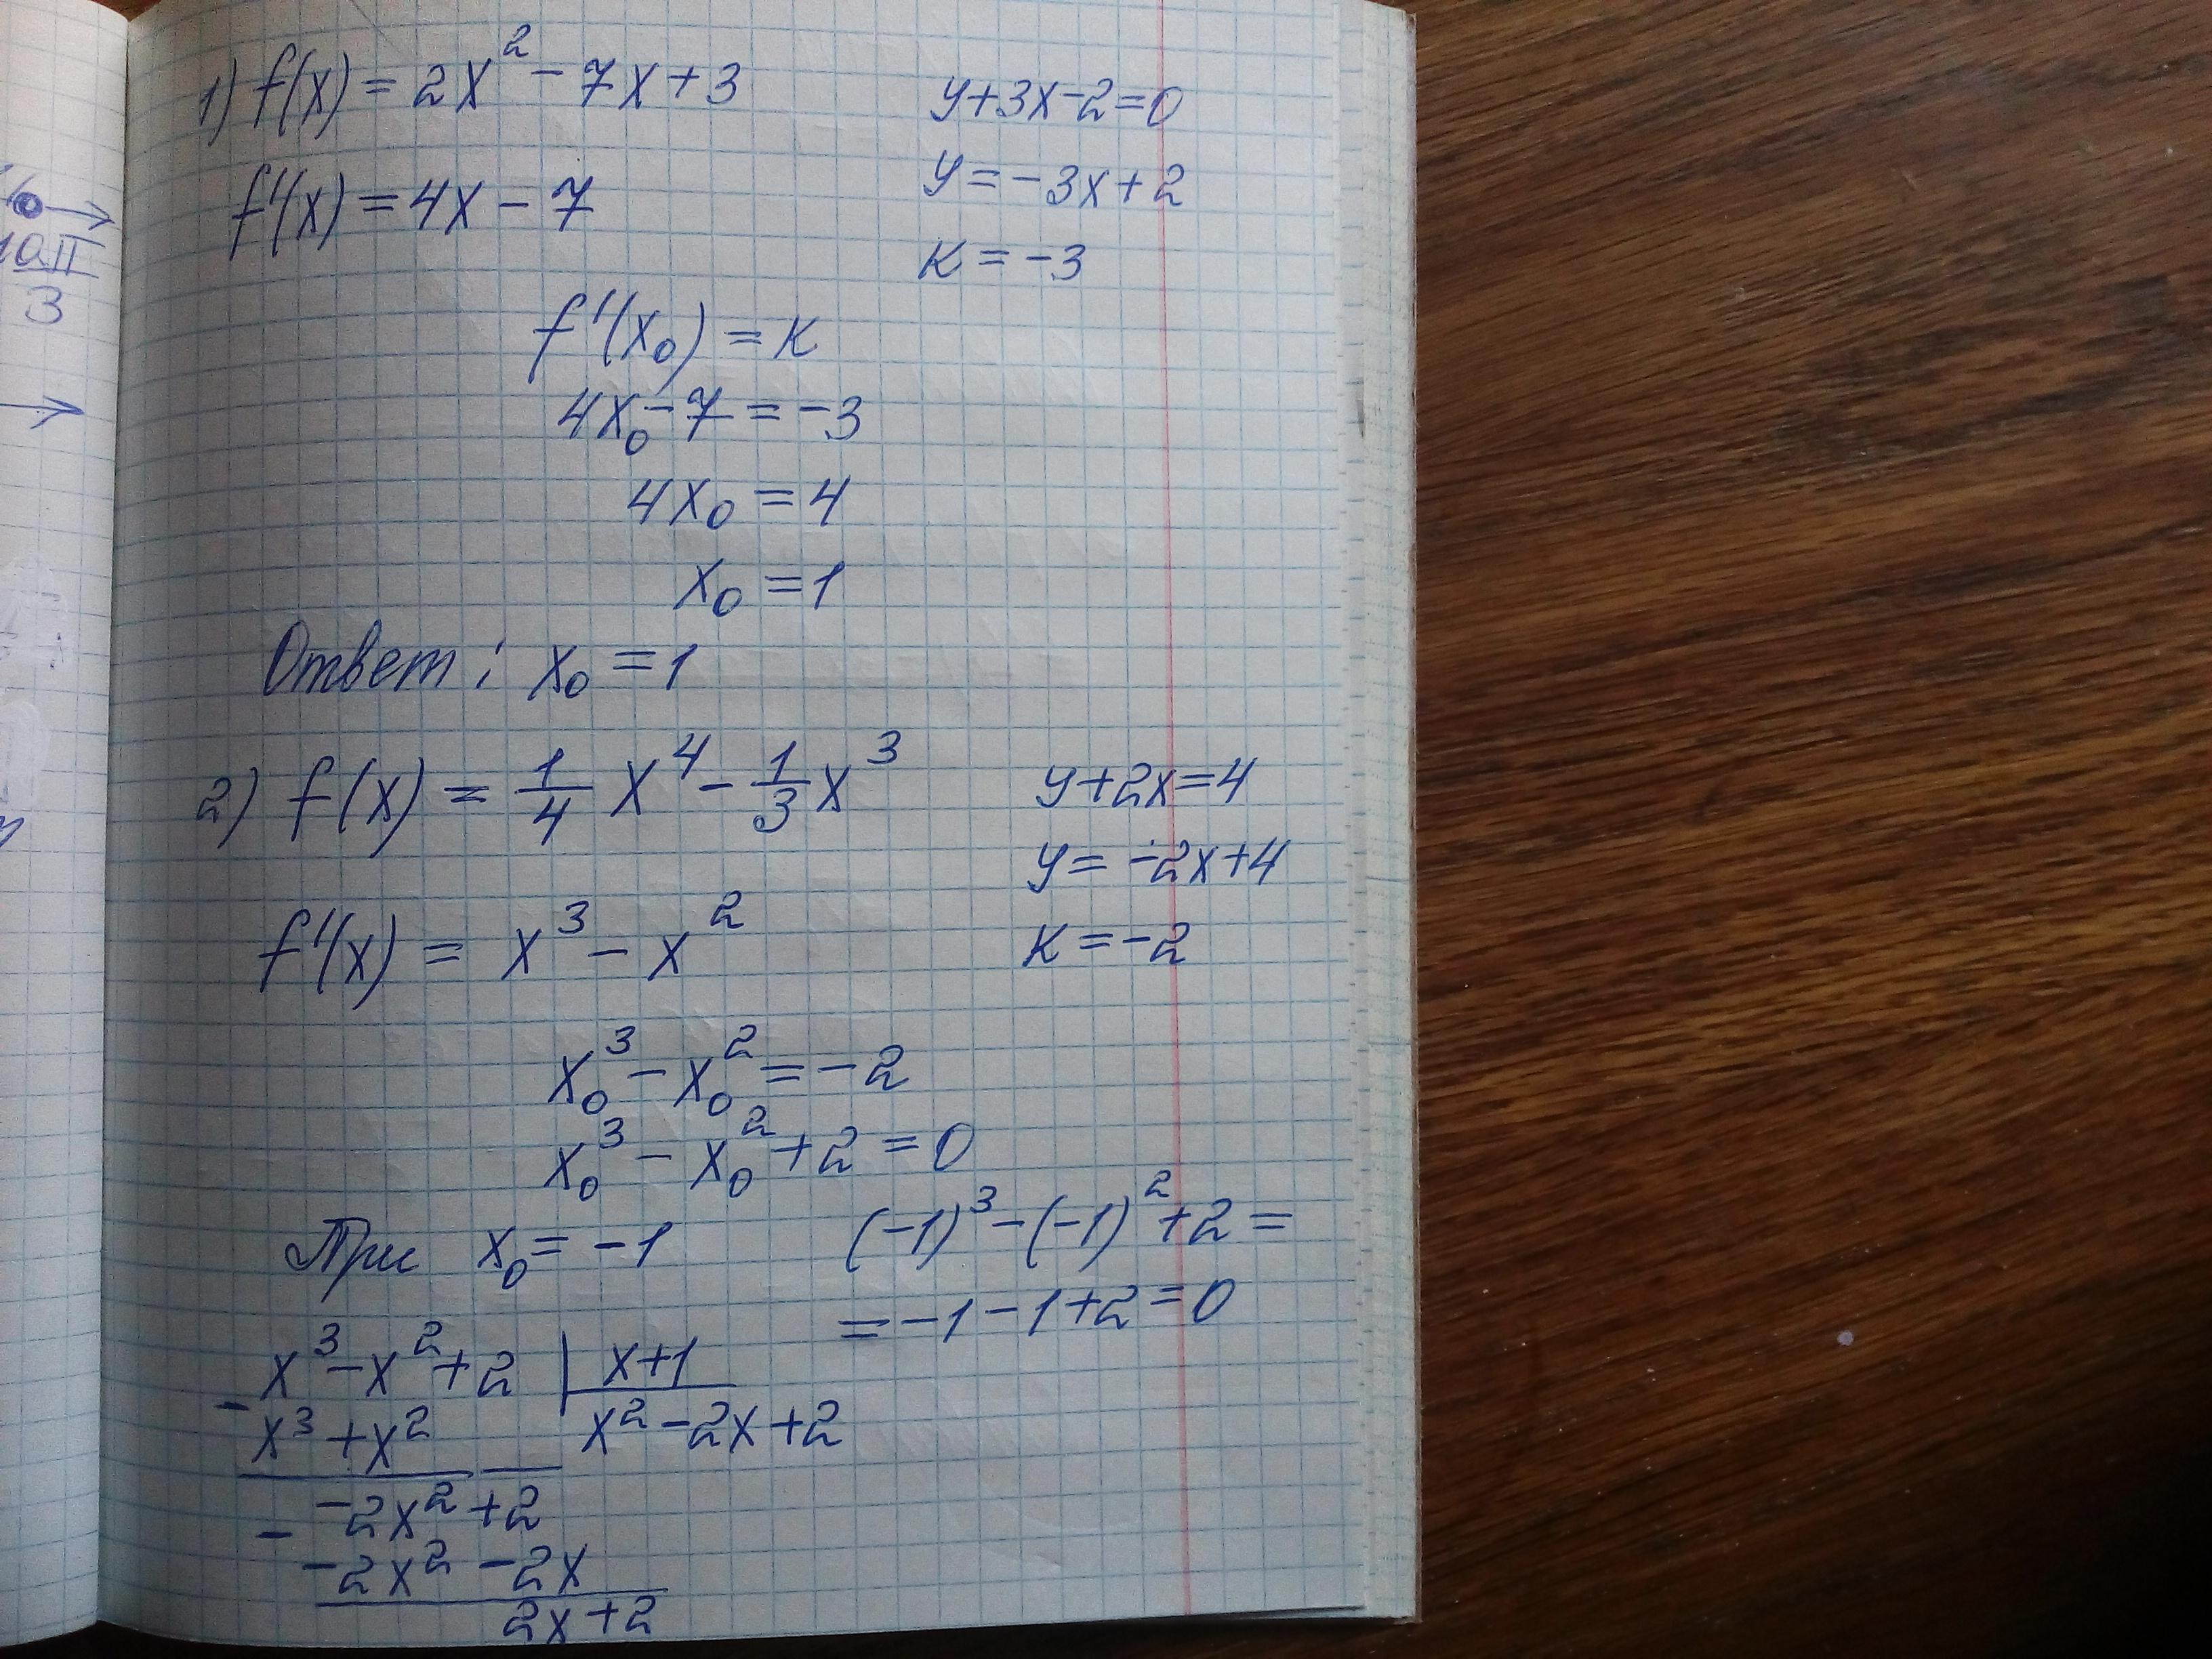 1) f(x) = 2x² - 7x + 3
y + 3x - 2 = 0
f'(x) = 4x - 7
y = -3x + 2
k = -3
f'(x₀) = k
4x₀ - 7 = -3
4x₀ = 4
x₀ = 1
Ответ: x₀ = 1
2) f(x) = 1/4 x⁴ - 1/3 x³
y + 2x = 4
y = -2x + 4
f'(x) = x³ - x²
k = -2
x₀³ - x₀² = -2
x₀³ - x₀² + 2 = 0
При x₀ = -1
(-1)³ - (-1)² + 2 =
= -1 - 1 + 2 = 0
x³ - x² + 2 | x + 1
- x³ + x² x² - 2x + 2
-2x² + 2
- -2x² - 2x
2x + 2
10π/3